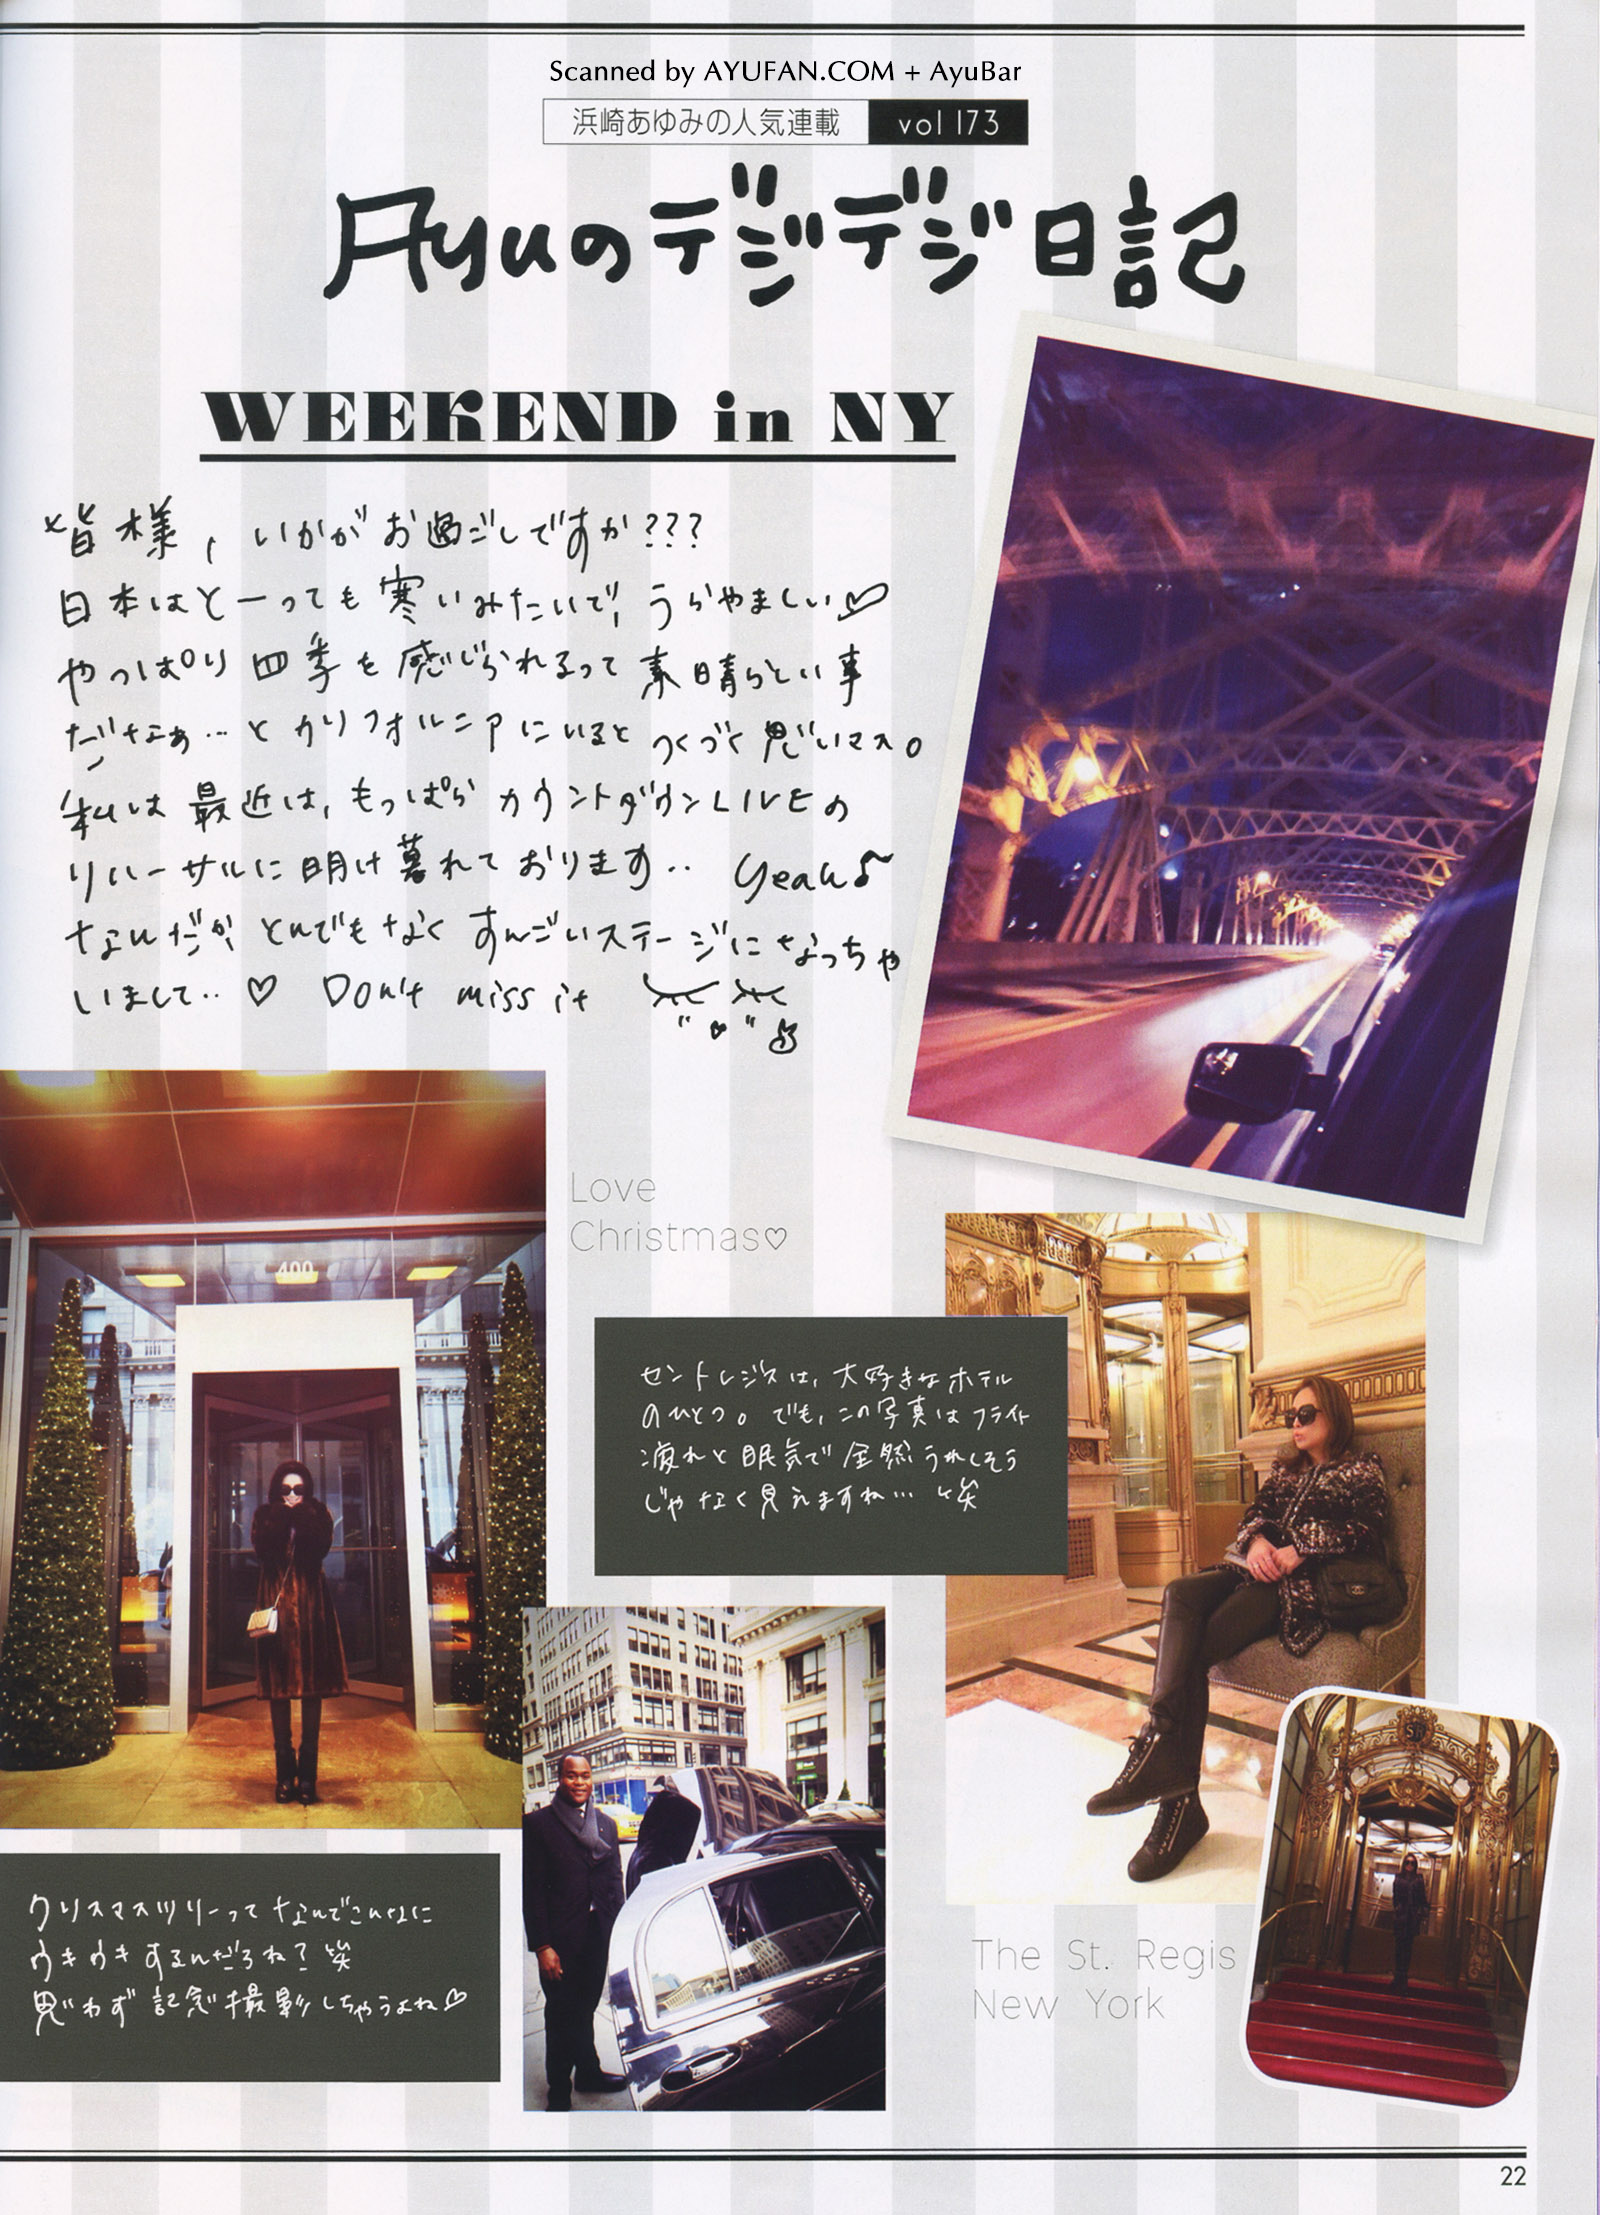 Scanned by AYUFAN.COM + AyuBar
浜崎あゆみの人気連載 vol 173
Ayuのデジデジ日記
WEEKEND in NY
皆様, いかがお過ごしですか???
日本はとーっても寒いみたいで, うらやましい♡
やっぱり四季を感じられるって素晴らしい事
だなぁ… とカリフォルニアにいるとつくづく思いマス。
私は最近は, もっぱらカウントダウンLIVEの
リハーサルに明け暮れております‥ Yeah♪
なんだか, とんでもなくすんごいステージになっちゃ
いまして‥♡ Don't miss it
Love
Christmas♡
400
セントレジスは, 大好きなホテル
のひとつ。でも, この写真はフライト
疲れと眠気で全然うれしそう
じゃなく見えますね… 笑
クリスマスツリーってなんでこんなに
ウキウキするんだろね? 笑
思わず記念撮影しちゃうよね♡
The St. Regis
New York
22